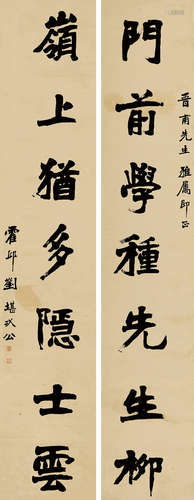 門前學種先生柳
晉甫先生雅屬即正
嶺上猶多隱士雲
霍邱劉堪
公